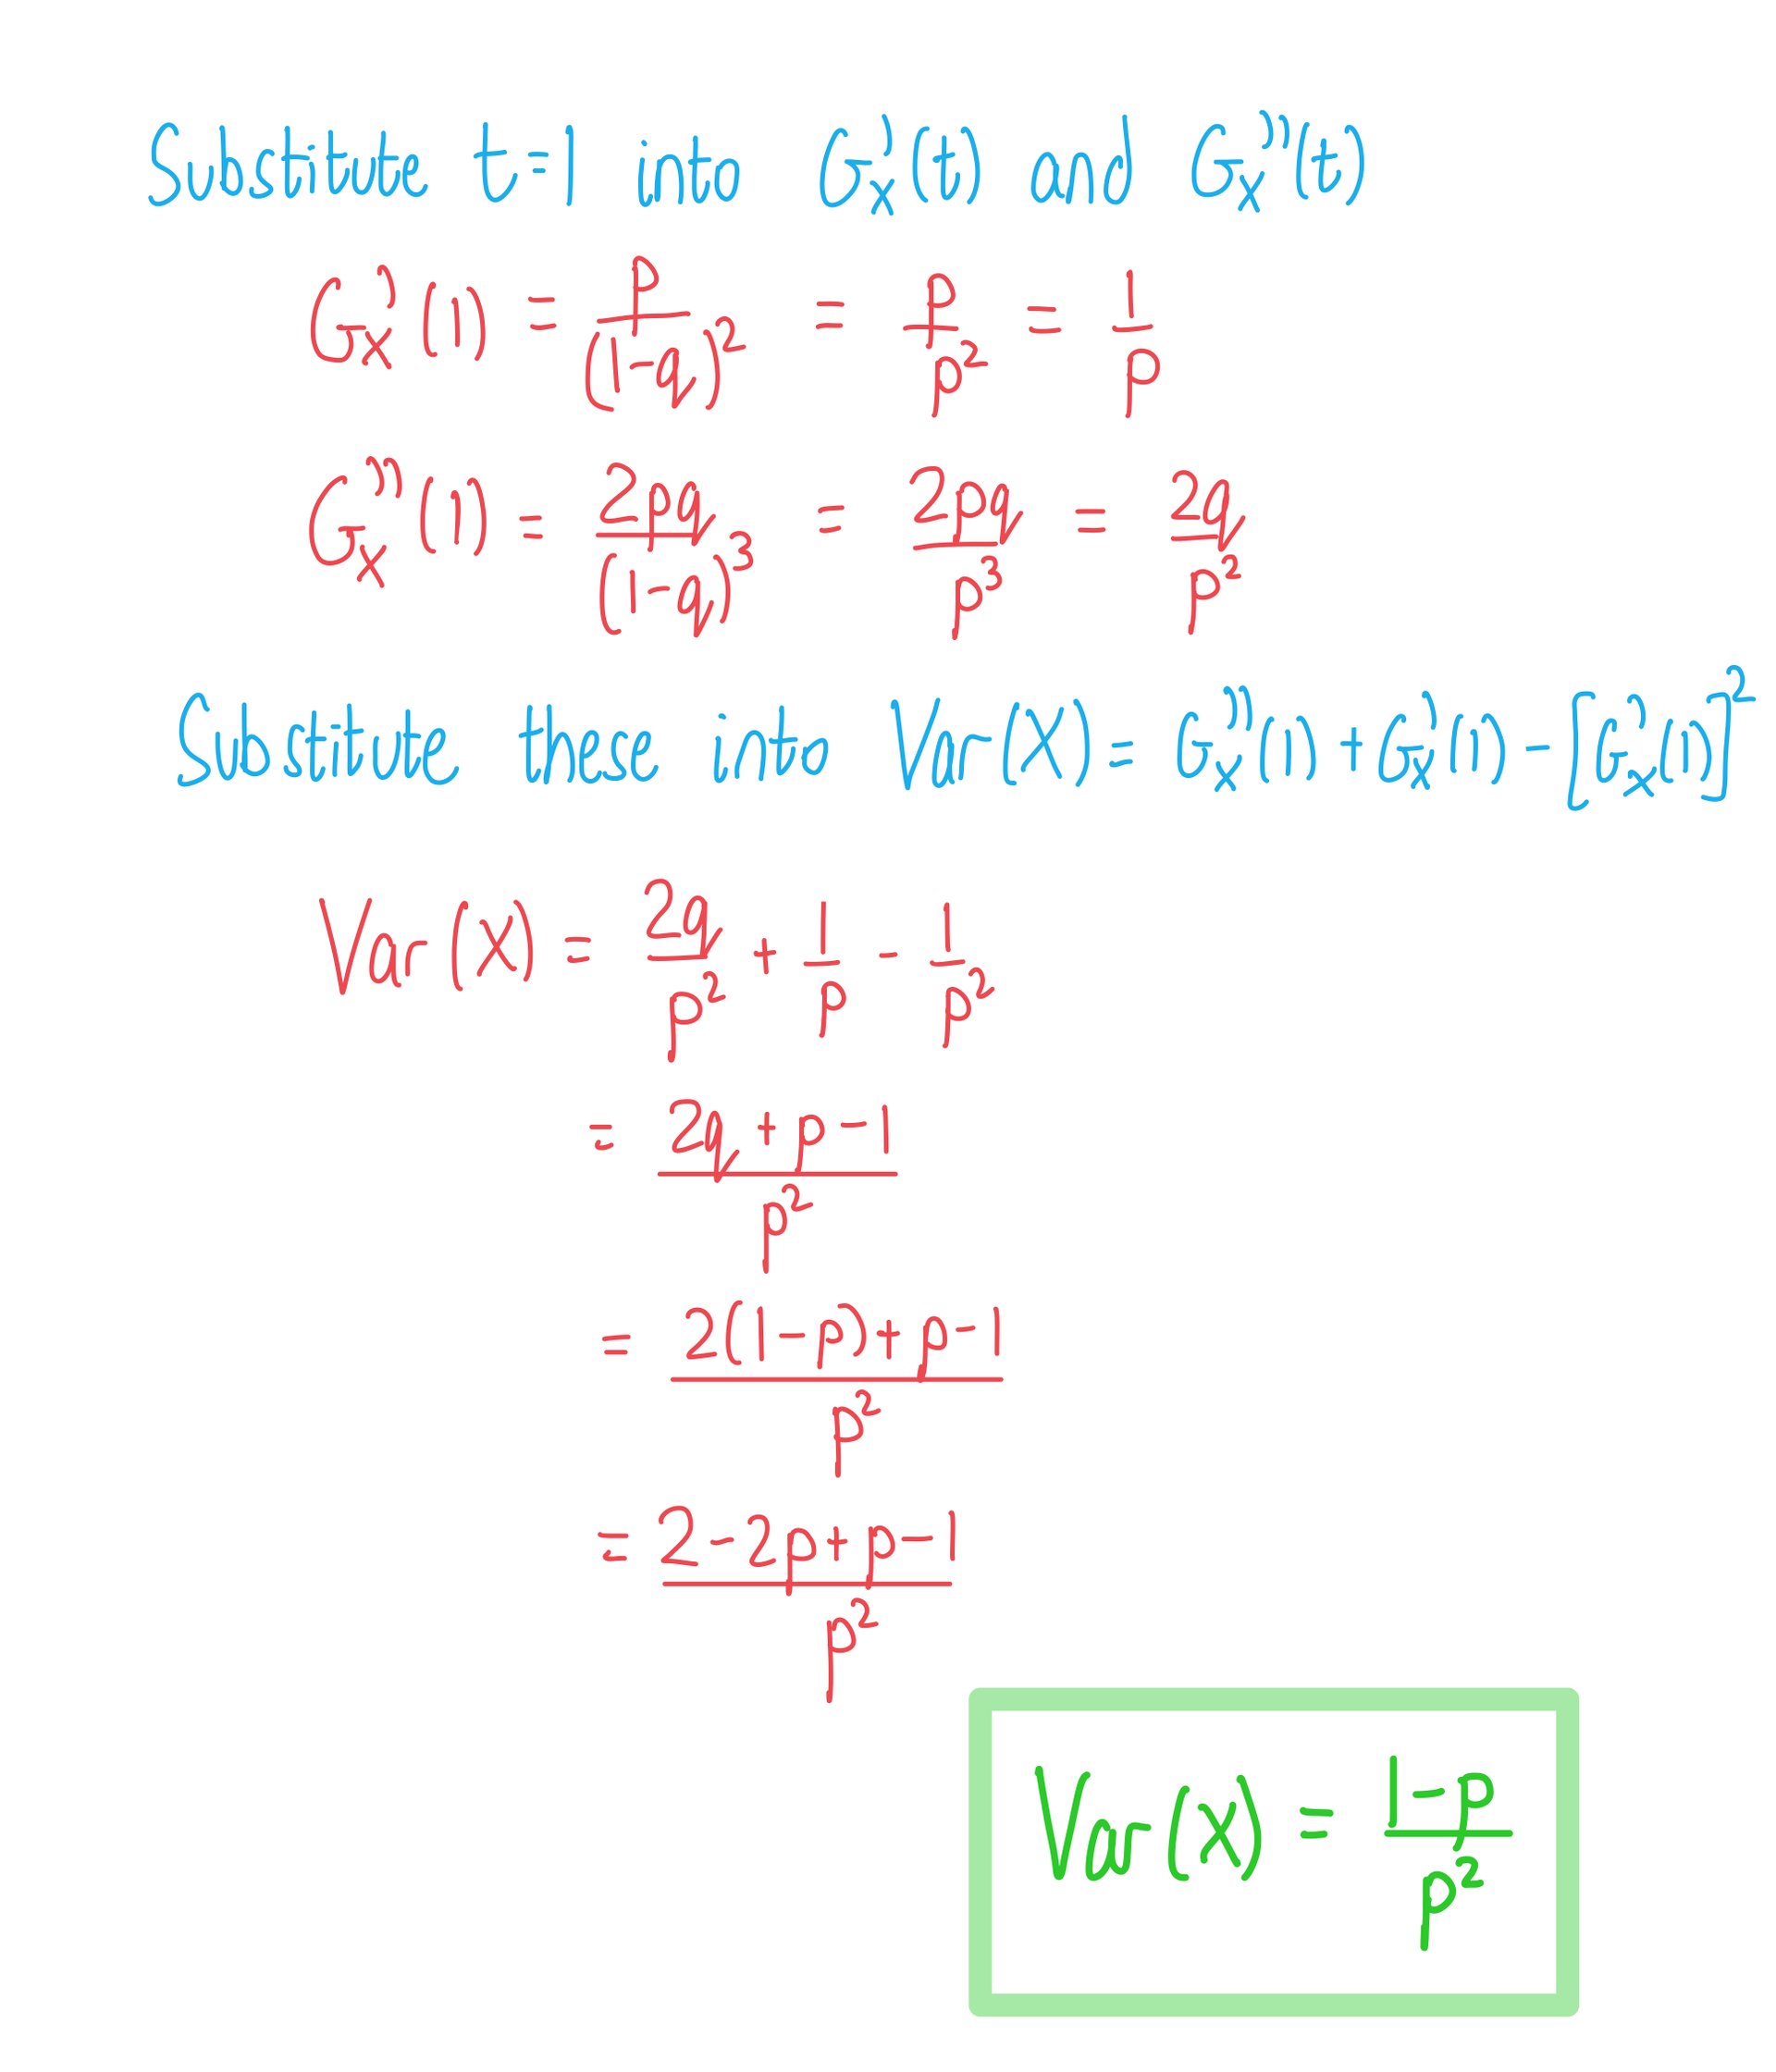 Substitute t=1 into G'ₓ(t) and G''ₓ(t)
G'ₓ(1) = p/(1-q)² = p/p² = 1/p
G''ₓ(1) = 2pq/(1-q)³ = 2pq/p³ = 2q/p²
Substitute these into Var(X) = G''ₓ(1) + G'ₓ(1) - [G'ₓ(1)]²
Var(X) = 2q/p² + 1/p - 1/p²
= (2q + p - 1)/p²
= (2(1-p) + p - 1)/p²
= (2 - 2p + p - 1)/p²
Var(X) = (1-p)/p²